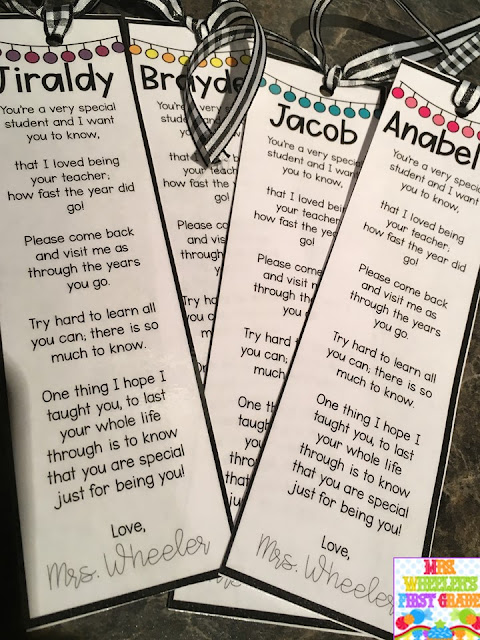 Jiraldy
You're a very special
student and I want
you to know,
that I loved being
your teacher;
how fast the year did
go!
Please come back
and visit me as
through the years
you go.
Try hard to learn all
you can; there is so
much to know.
One thing I hope I
taught you, to last
your whole life
through is to know
that you are special
just for being you!
Love,
Mrs. Wheeler
Brayde
You're a
student
that
how fast
Please
and
through
Try
you
One
Jacob
You're a very special
student and I want
you to know,
that I loved being
your teacher;
how fast the year
go!
Please come
and visit me
through the
you
Try hard
you can;
One
Anabel
You're a very special
student and I want
you to know,
that I loved being
your teacher;
how fast the year did
go!
Please come back
and visit me as
through the years
you go.
Try hard to learn all
you can; there is so
much to know.
One thing I hope I
taught you, to last
your whole life
through is to know
that you are special
just for being you!
Love,
Mrs. Wheeler
MRS.
WHEELER'S
FIRST GRADE